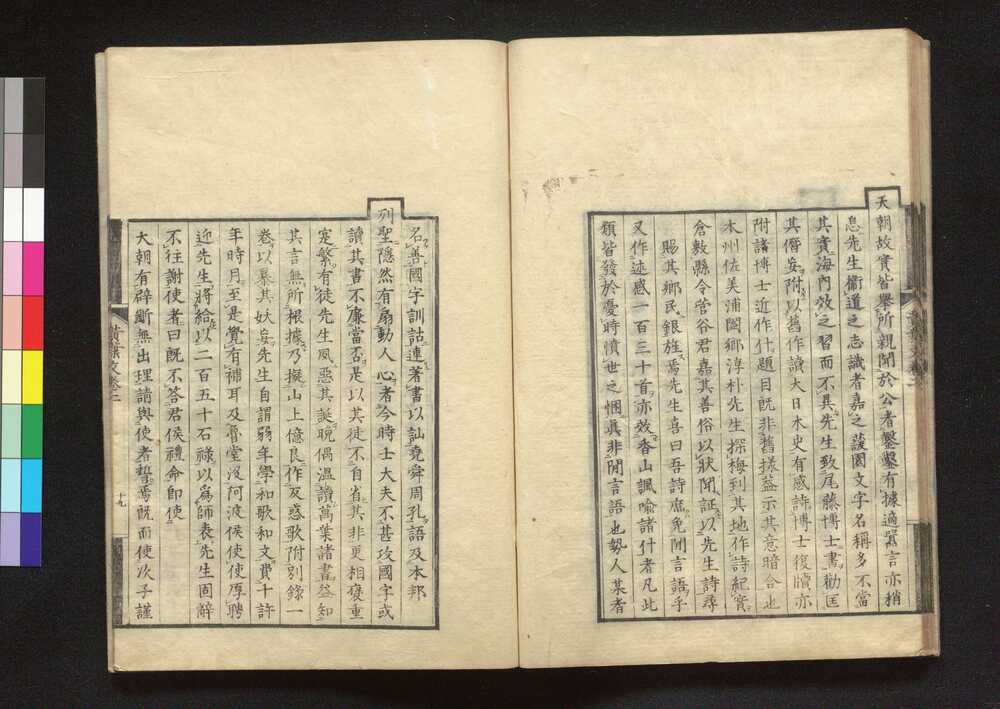 天朝故實皆舉所親聞於公者鑿鑿有據適言亦稍
息先生衞道之志識者嘉之蓋國文字名稱多不當
其實海內效之習而不異先生致尾藤博士書勸匡
其僭妄附以舊作讀大日本史有感詩博士復牘亦
附諸博士近作什題目既非舊樣益示其意暗合也
本州佐美浦閤鄉淳朴先生探梅到其地作詩紀實
倉敷縣令菅谷君嘉其善俗以狀聞証以先生詩尋
賜其鄉民銀旌焉先生喜曰吾詩庶免閒言語乎
又作述感一百三十首亦效香山諷喻諸什者凡此
類皆發於憂時憤世之悃眞非閒言語也勢人某者
名善國字訓詁連著書以訕堯舜周孔語及本邦
列聖隱然有扇動人心者今時士大夫不甚攻國字或
讀其書不廉當否是以其徒不自省其非更相褒重
寔繁有徒先生夙惡其誕晚偶溫讀萬葉諸書益知
其言無所根據乃擬山上憶良作反惑歌附別錄一
卷以暴其妖妄先生自謂弱年學和歌和文費十許
年時月至是覺有補耳及魯堂沒阿波侯使使厚聘
迎先生將給以二百五十石祿以爲師表先生固辭
不往謝使者曰既不答君侯禮命即使
大朝有辟斷無出理請與使者誓焉既而使次子謹
黃葉文卷二
十九